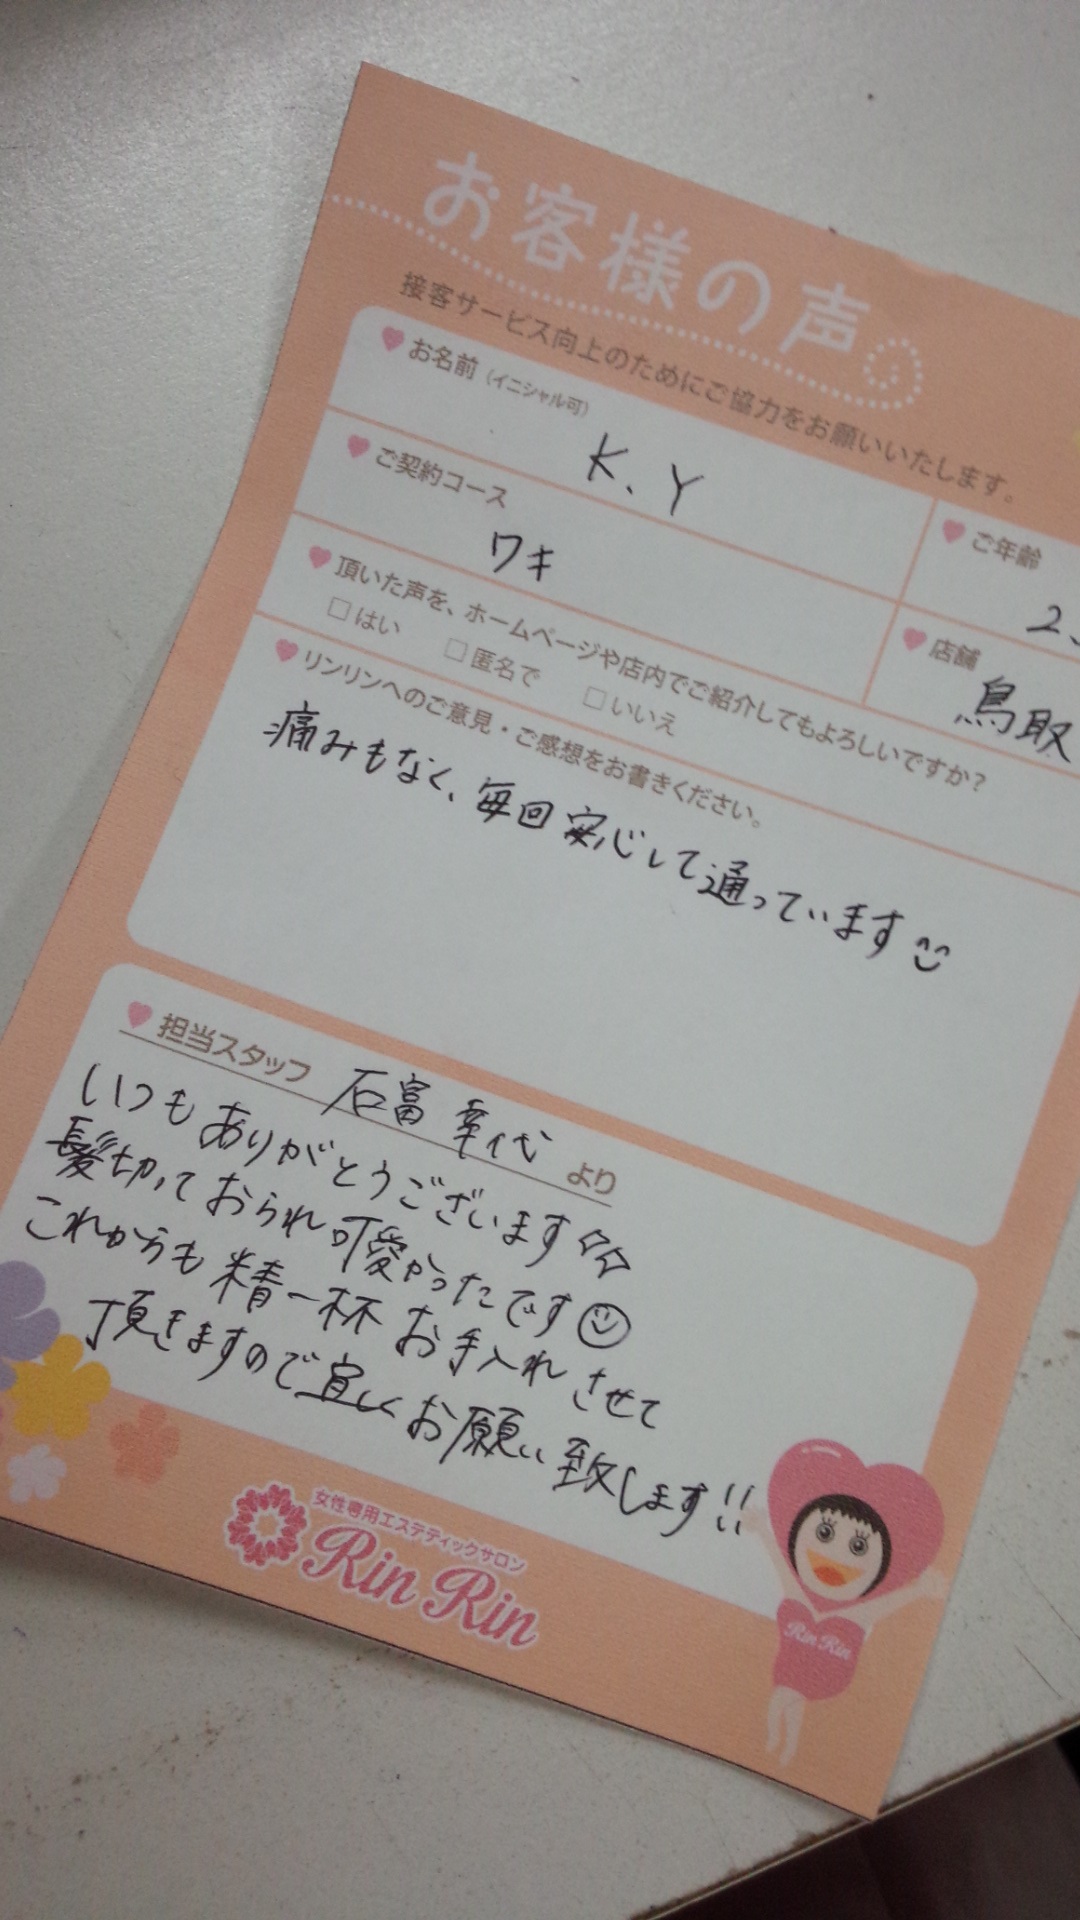 お客様の声
接客サービス向上のためにご協力をお願いいたします。
お名前（イニシャル可）
K、Y
ご年齢
ご契約コース
ワキ
店舗
鳥取
頂いた声を、ホームページや店内でご紹介してもよろしいですか？
□はい □匿名で □いいえ
リンリンへのご意見・ご感想をお書きください。
痛みもなく、毎回安心して通っています
担当スタッフ 石富 幸代 より
いつもありがとうございます
髪切っておられ可愛かったです
これからも精一杯お手入れさせて
頂きますので宜しくお願い致します!!
女性専用エステティックサロン
Rin Rin
Rin Rin